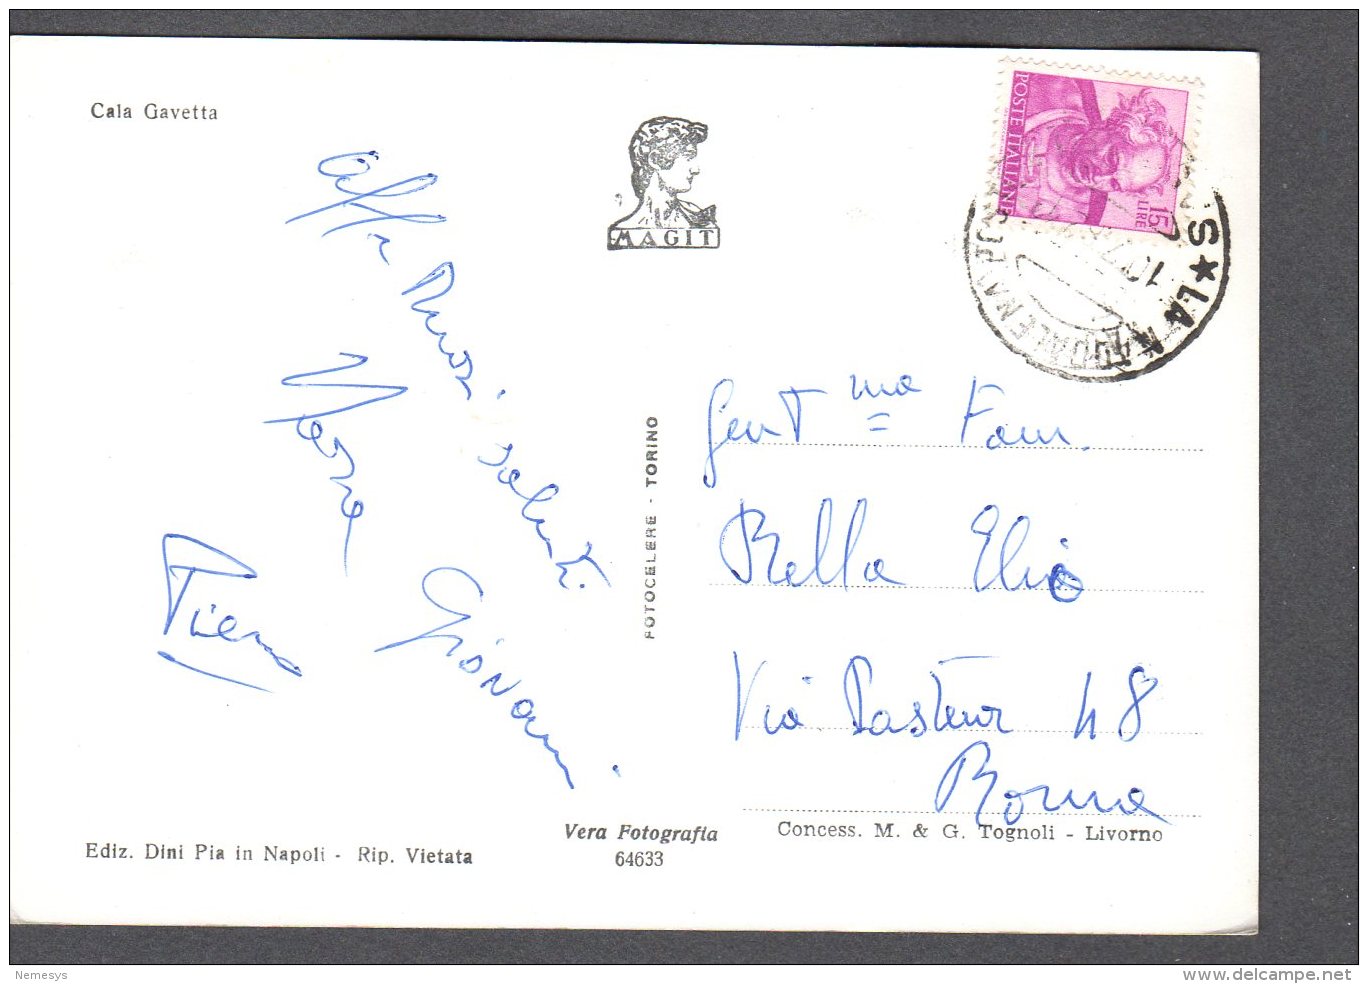 Cala Gavetta
MAGIT
POSTE ITALIANE
LIRE 15
S ★ LA MADDALENA
Affettuosi saluti
Piero
Giovanni
FOTOCELERE - TORINO
Gent ma = Fam.
Bella Elio
Via Pasteur 48
Roma
Ediz. Dini Pia in Napoli - Rip. Vietata
Vera Fotografia
64633
Concess. M. & G. Tognoli - Livorno
Nemesys
www.delcampe.net